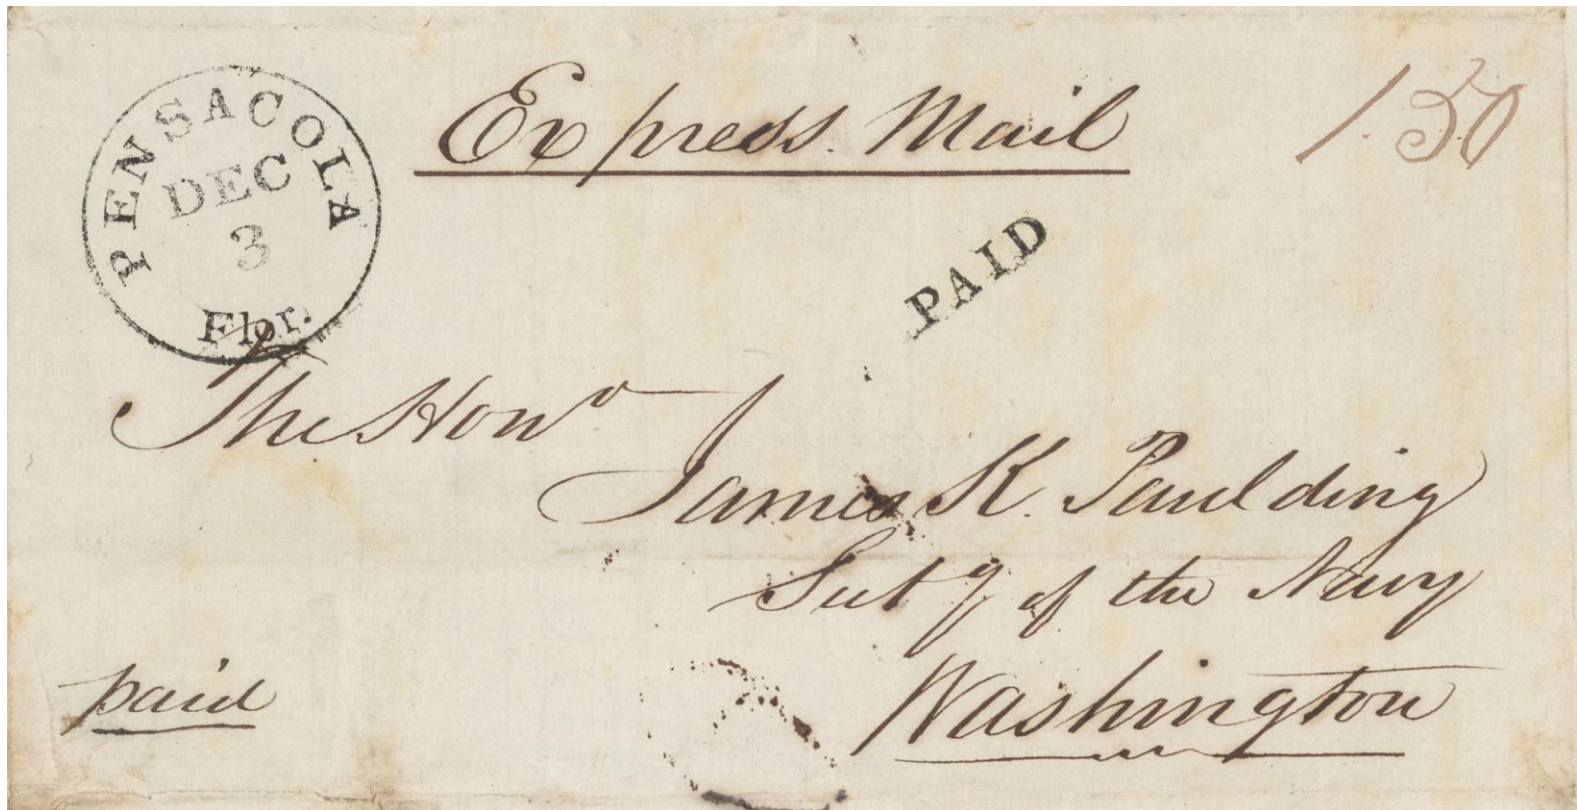 PENSACOLA
DEC
3
Flor.
Express Mail
1.50
PAID
The Honᵉ
James K. Paulding
Secty of the Navy
Washington
paid